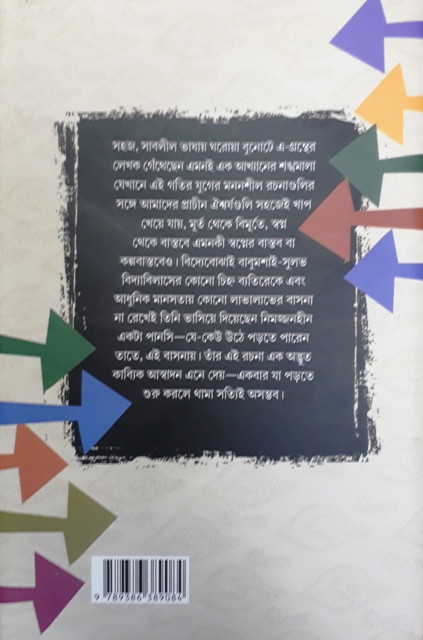 সহজ, সাবলীল ভাষায় ঘরোয়া বুনোটে এ-গ্রন্থের
লেখক গেঁথেছেন এমনই এক আখ্যানের শব্দমালা
যেখানে এই গতির যুগের মননশীল রচনাগুলির
সঙ্গে আমাদের প্রাচীন ঐশ্বর্যগুলি সহজেই খাপ
খেয়ে যায়, মূর্ত থেকে বিমূর্তে, স্বপ্ন
থেকে বাস্তবে এমনকী স্বপ্নের বাস্তব বা
কল্পবাস্তবেও। বিদ্যেবোঝাই বাবুমশাই-সুলভ
বিদ্যাবিলাসের কোনো চিহ্ন ব্যতিরেকে এবং
আধুনিক মানসতায় কোনো লাভালাভের বাসনা
না রেখেই তিনি ভাসিয়ে দিয়েছেন নিমজ্জনহীন
একটা পানসি—যে-কেউ উঠে পড়তে পারেন
তাতে, এই বাসনায়। তাঁর এই রচনা এক অদ্ভুত
কাব্যিক আস্বাদন এনে দেয়—একবার যা পড়তে
শুরু করলে থামা সত্যিই অসম্ভব।
9 789386 389086